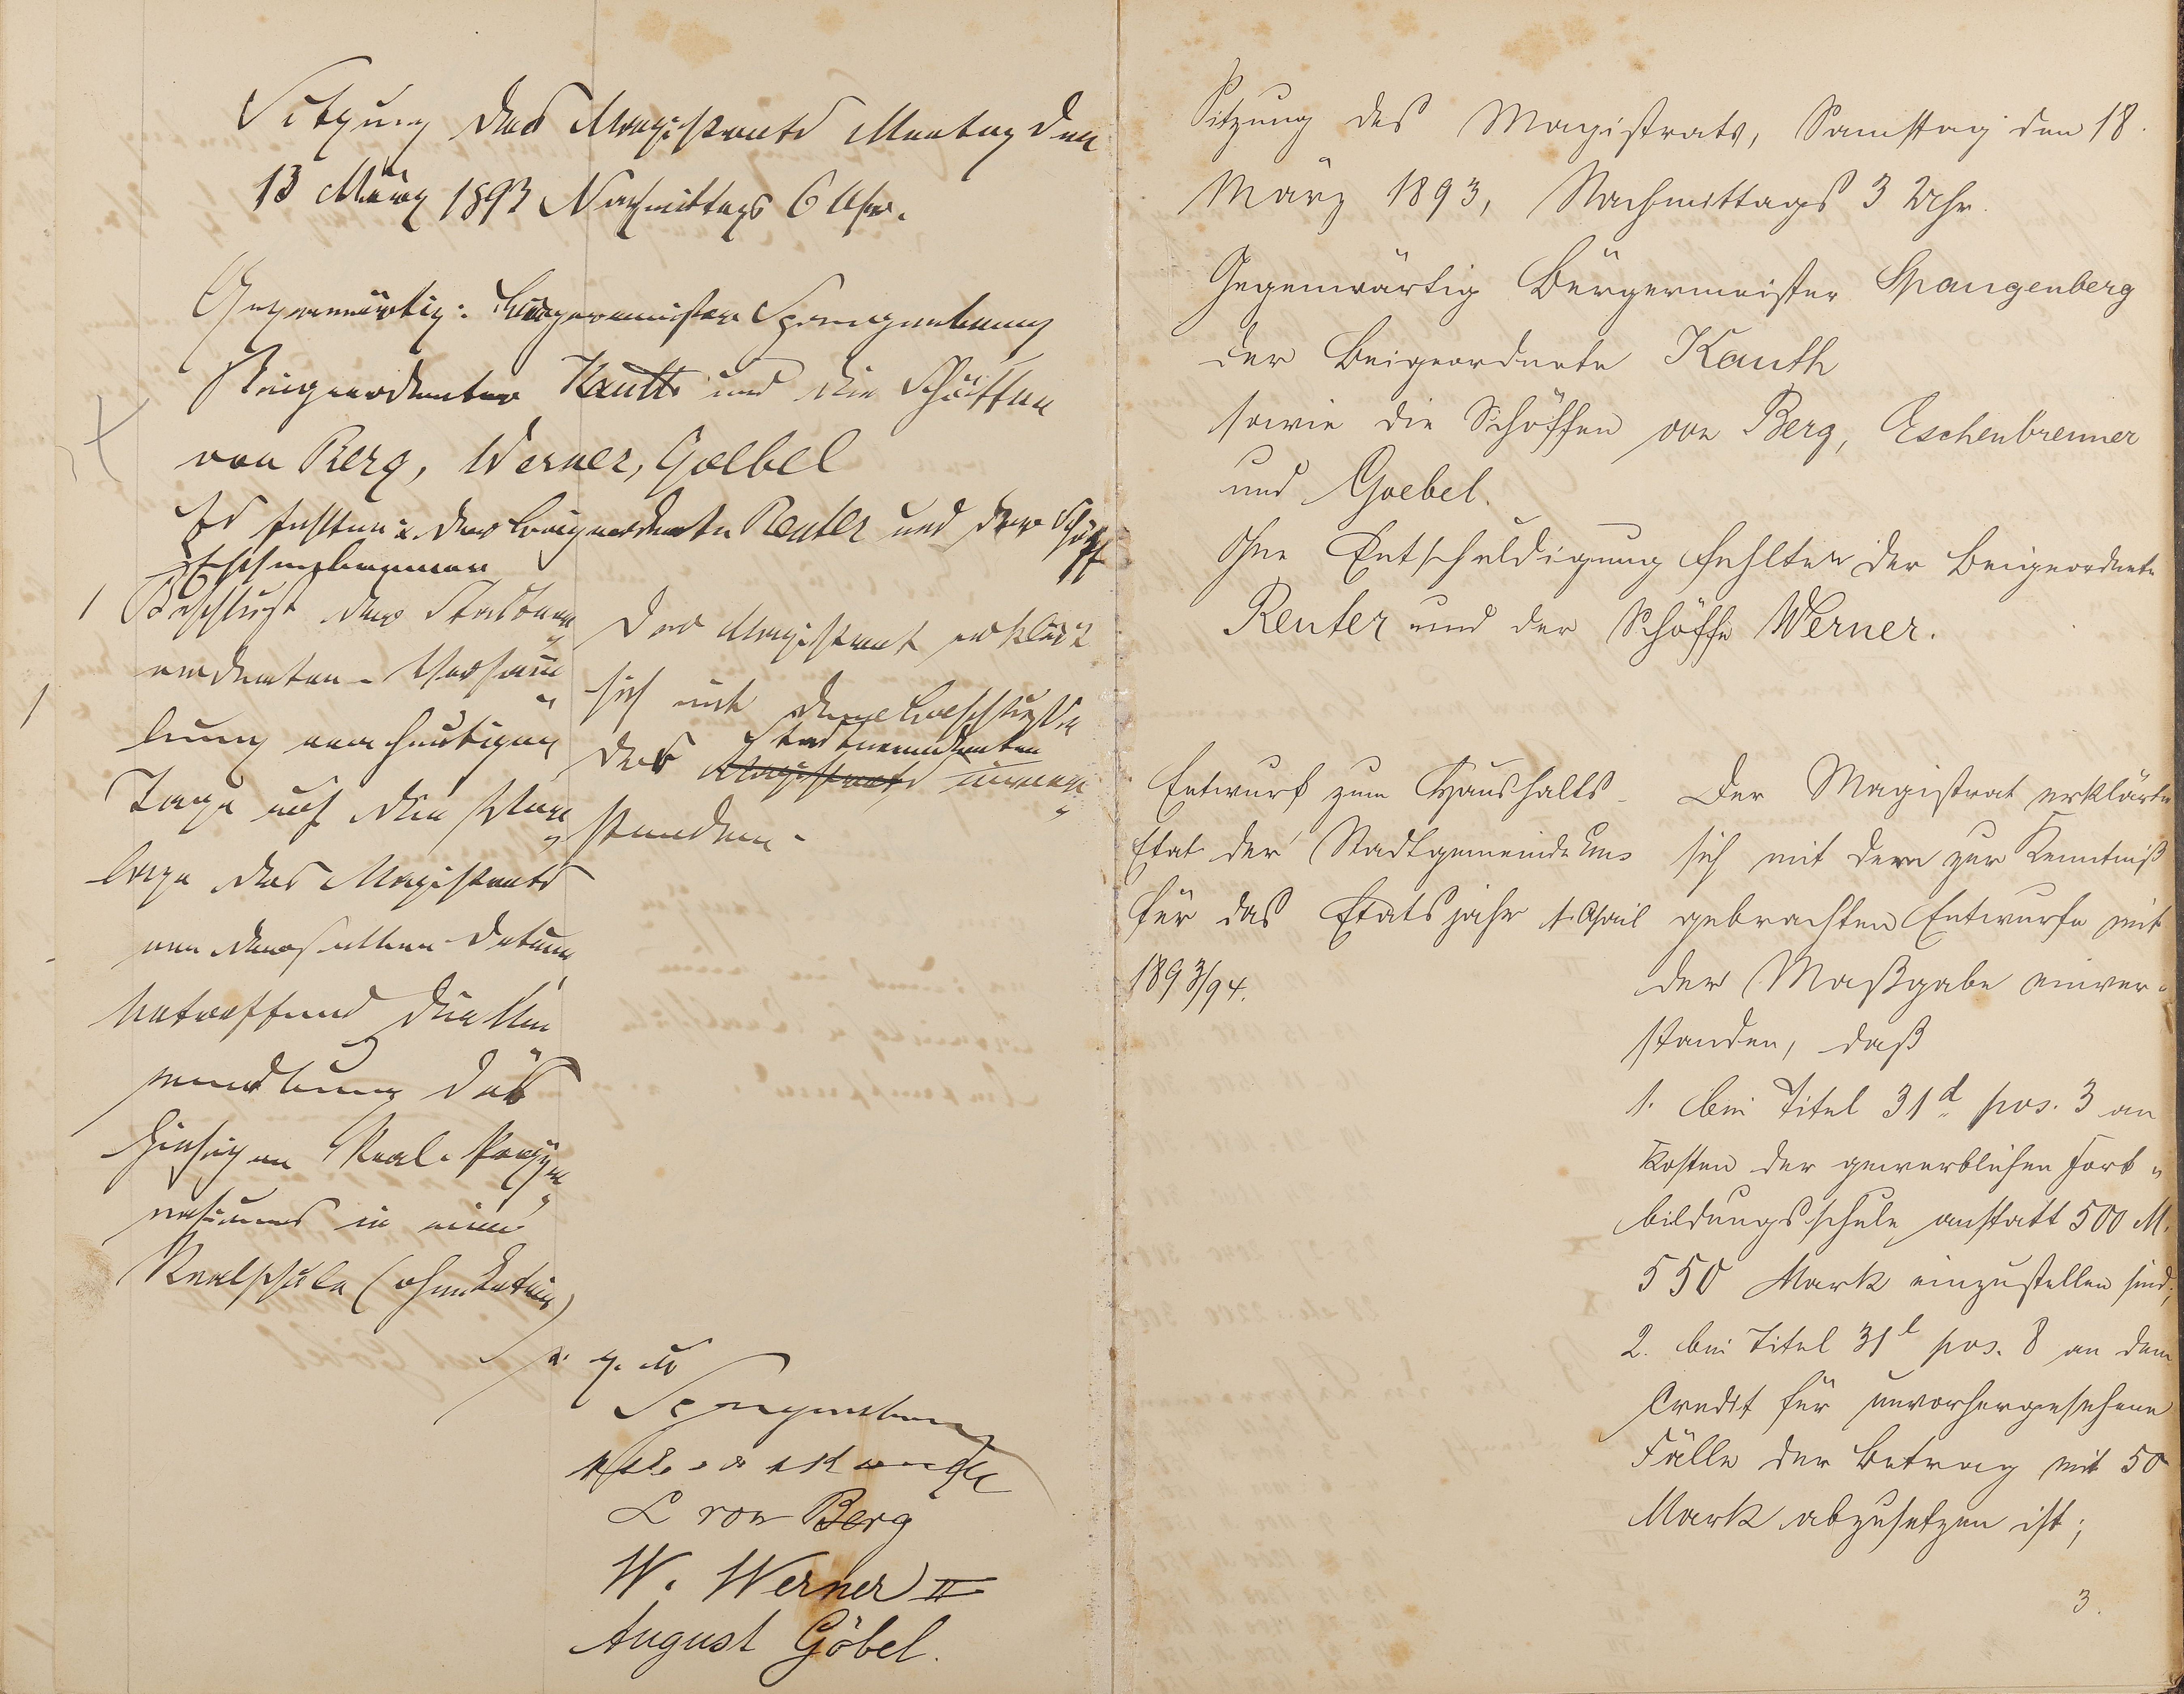 Sitzung des Magistrats Montag den
13 März 1893 Nachmittags 6 Uhr.
Gegenwärtig: Bürgermeister Spangenberg
Beigeordneter Kauth und die Schöffen
von Berg, Werner, Goebel
Es fehlten: der Beigeordnete Reuter und der Schöffe
Eschenbrenner
1 Beschluß der Stadtver
ordneten-Versamm
lung vom heutigen
Tage auf die Vor
lage des Magistrats
von demselben Datum
betreffend die Um
wandlung des
hiesigen Real-Progym
nasiums in eine
Realschule (ohne Latein)
Der Magistrat erklärt
sich mit dem Beschlusse
der Stadtverordneten
Magistrats einver
standen.
v. g. u.
Spangenberg
L von Berg
W. Werner II
August Göbel.
Sitzung des Magistrats, Samstag den 18.
März 1893, Nachmittags 3 Uhr.
Gegenwärtig Bürgermeister Spangenberg
der Beigeordnete Kauth
sowie die Schöffen von Berg, Eschenbrenner
und Goebel.
Ohne Entschuldigung fehlten der Beigeordnete
Reuter und der Schöffe Werner.
Entwurf zum Haushalts-
Etat der Stadtgemeinde Ems
für das Etatsjahr 1. April
1893/94.
Der Magistrat erklärte
sich mit dem zur Kenntniß
gebrachten Entwurfe mit
der Maßgabe einver-
standen, daß
1. bei Titel 31d pos. 3 an
Kosten der gewerblichen Fort-
bildungsschule anstatt 500 M.
550 Mark einzustellen sind;
2. bei Titel 31l pos. 8 an dem
Credit für unvorhergesehene
Fälle der Betrag mit 50
Mark abzusetzen ist;
3.